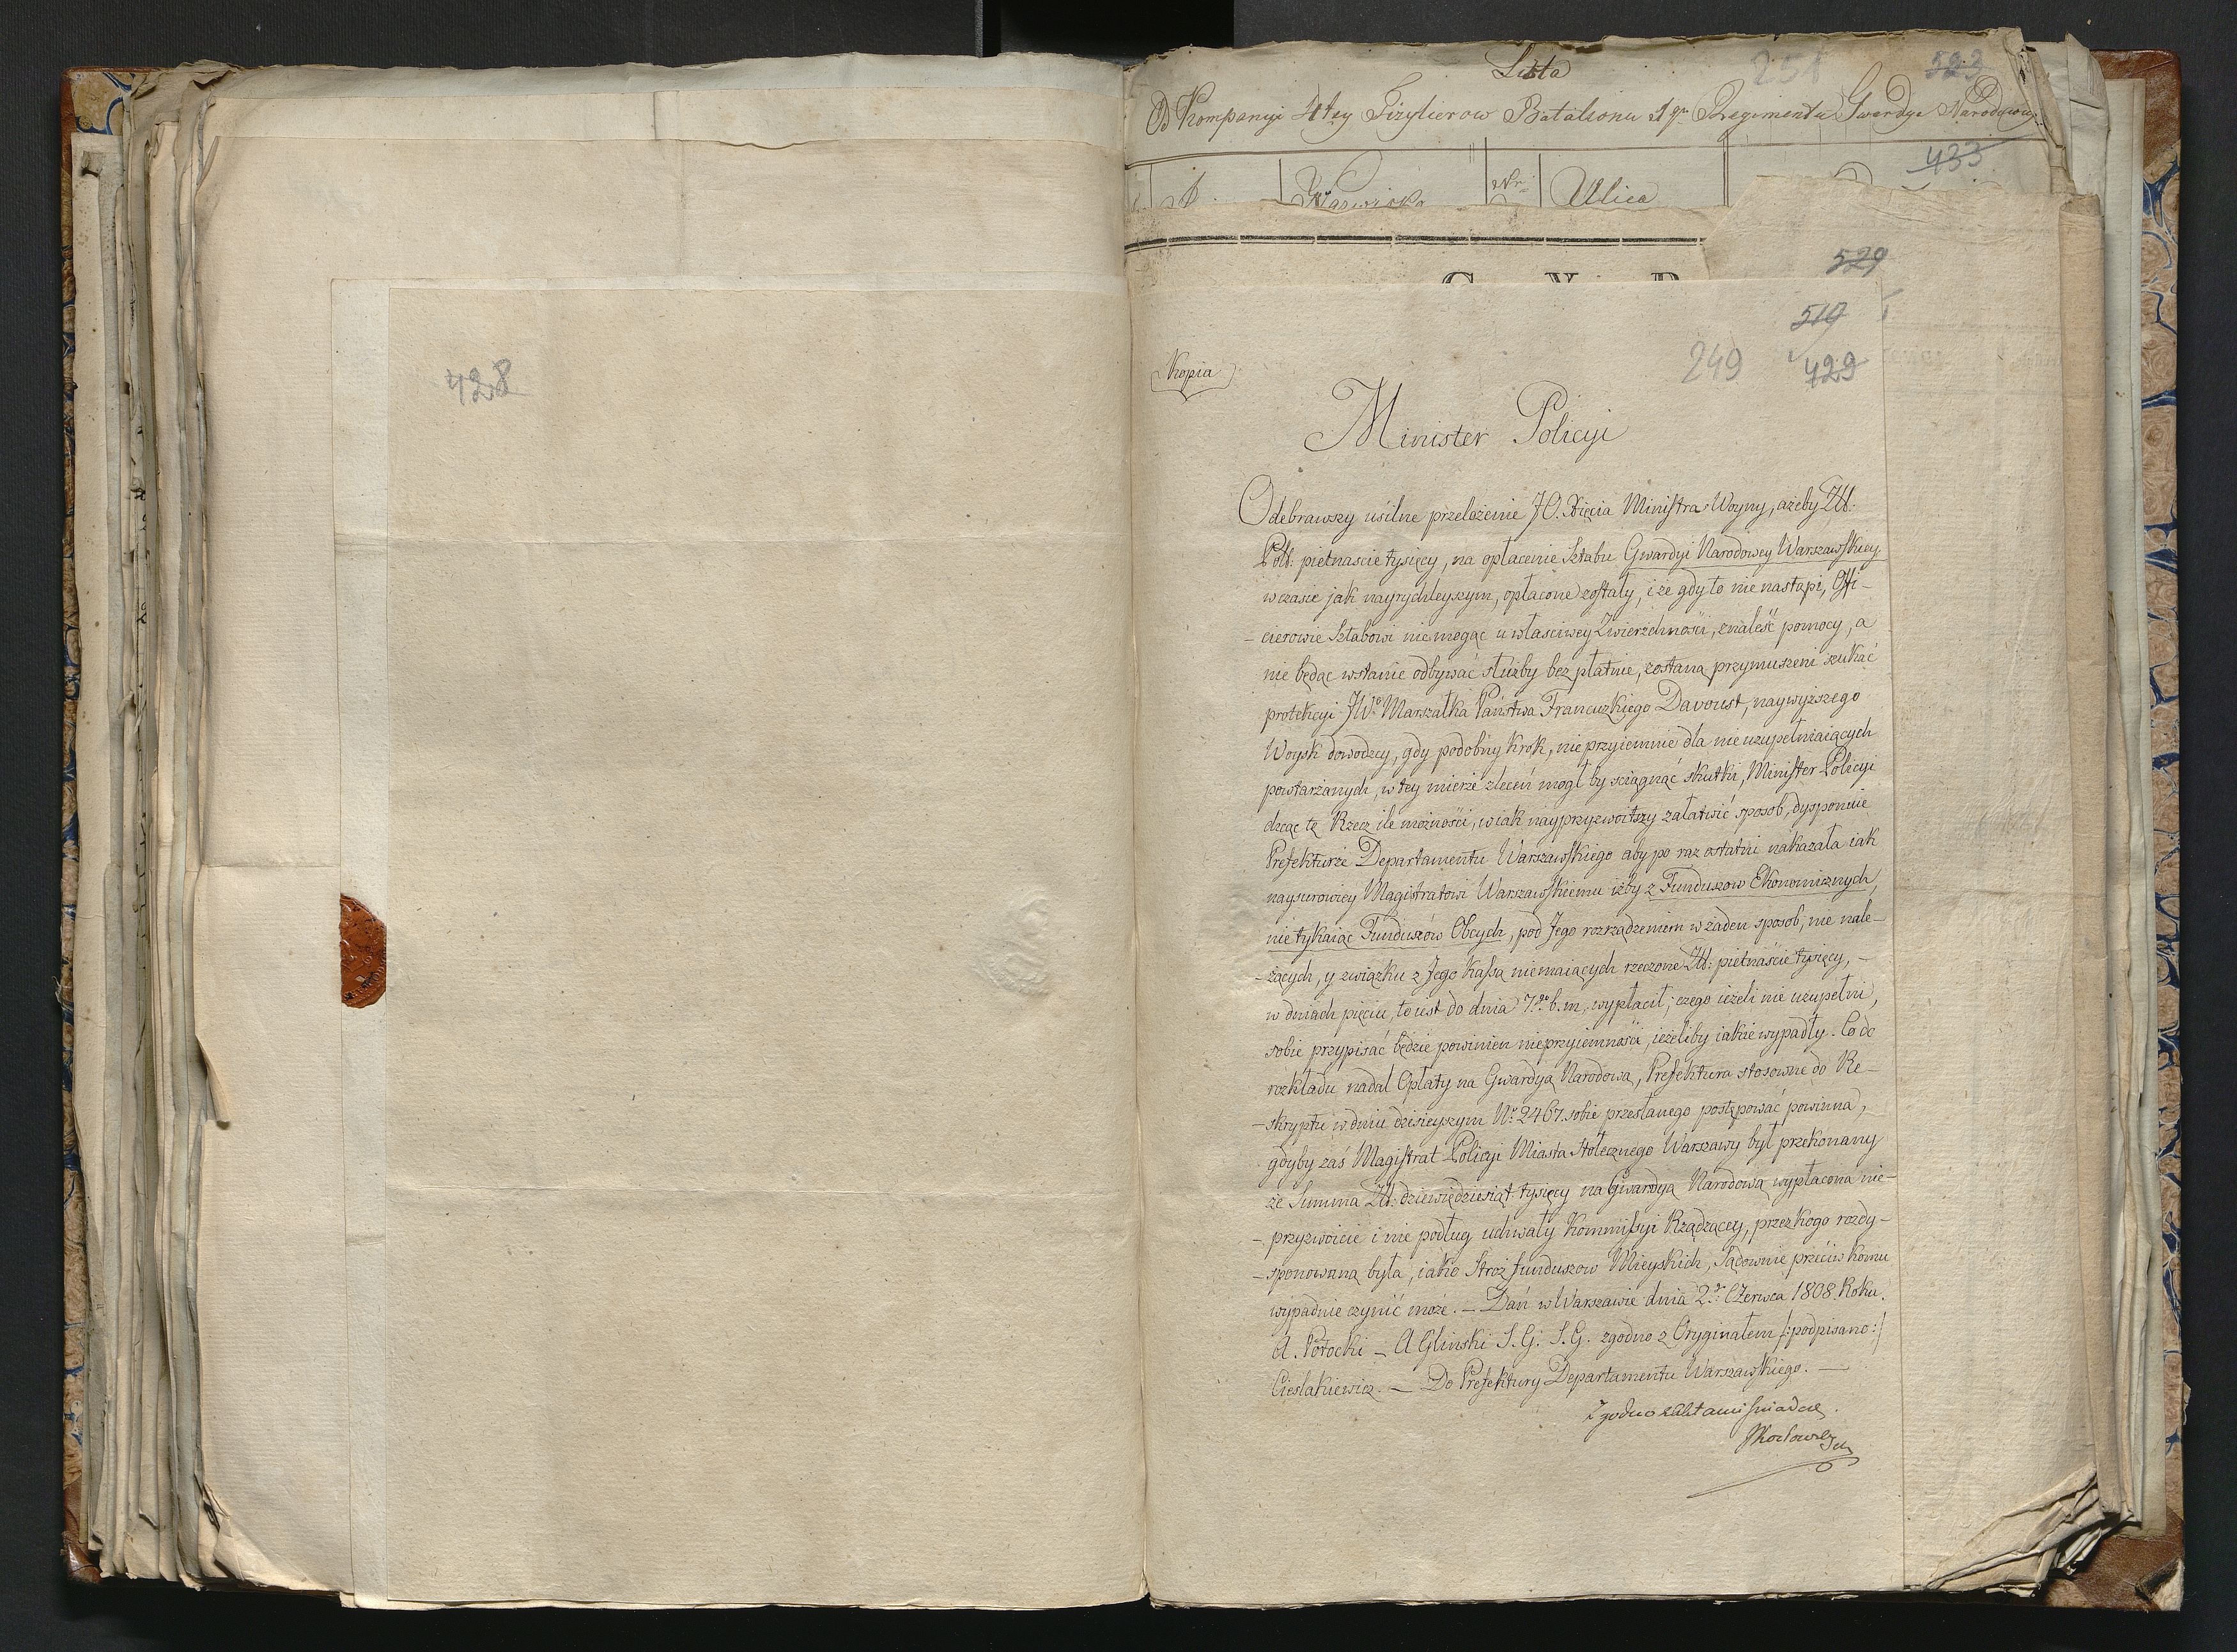 428
Lista
251
523
Od Kompanyi 4tey Fizylierow Batalionu 1go Regimentu Gwardyi Narodowey
433
Nazwiska
Nro
Ulica
529
519
249
429
Kopia
Minister Policyi
Odebrawszy usilne przełożenie JO. Xięcia Ministra Woyny, ażeby Zł:
Pol: pietnascie tysięcy, na opłacenie Sztabu Gwardyi Narodowey Warszawskiey
w czasie jak nayrychleyszym, opłacone zostały, i że gdy to nie nastąpi, Offi-
-cierowie Sztabowi nie mogąc u własciwey Zwierzchności, znaleść pomocy, a
nie będąc wstanie odbywać służby bezpłatnie, zostaną przymuszeni szukać
protekcyi JWo Marszałka Państwa Francuzkiego Davoust, naywyższego
Woysk dowodzcy, gdy podobny krok, nieprzyiemnie dla nieuzupełniaiących
powtarzanych, w tey mierze zleceń mógł by sciągnąć skutki, Minister Policyi
chcąc tę Rzecz ile możności, w iak nayprzyzwoitszy załatwić sposób, dysponuie
Prefekturze Departamentu Warszawskiego aby po raz ostatni nakazała iak
naysurowiey Magistratowi Warszawskiemu iżby z Funduszow Ekonomicznych,
nie tykaiąc Funduszów Obcych, pod Jego rozrządzeniem w żaden sposób, nie nale-
-żących, y związku z Jego Kassą niemaiących rzeczone Zł: pietnaście tysięcy, -
w dniach pięciu, to iest do dnia 7go b. m. wypłacił; czego ieżeli nie uzupełni,
sobie przypisać będzie powinien nieprzyiemności, ieżeliby iakie wypadły. Co do
rozkładu nadal Opłaty na Gwardyą Narodową, Prefektura stosownie do Re-
-skryptu w dniu dzisieyszym No 2467. sobie przesłanego postępować powinna,
gdyby zaś Magistrat Policyi Miasta Stołecznego Warszawy był przekonany
że Summa Zł: dziewiędziesiąt tysięcy na Gwardyą Narodową wypłacona nie-
-przyzwoicie i nie podług uchwały Kommissyi Rządzącey, przez kogo rozdy-
-sponowaną była, iako Stroż funduszow Mieyskich, Sądownie przeciw komu
wypadnie czynić może. - Dan w Warszawie dnia 2go Czerwca 1808. Roku.
A. Potocki - A Glinski S. G. S. G. zgodno z Oryginałem /:podpisano:/
Cieslakiewicz. - Do Prefektury Departamentu Warszawskiego. -
Zgodno z Aktami swiadczę.